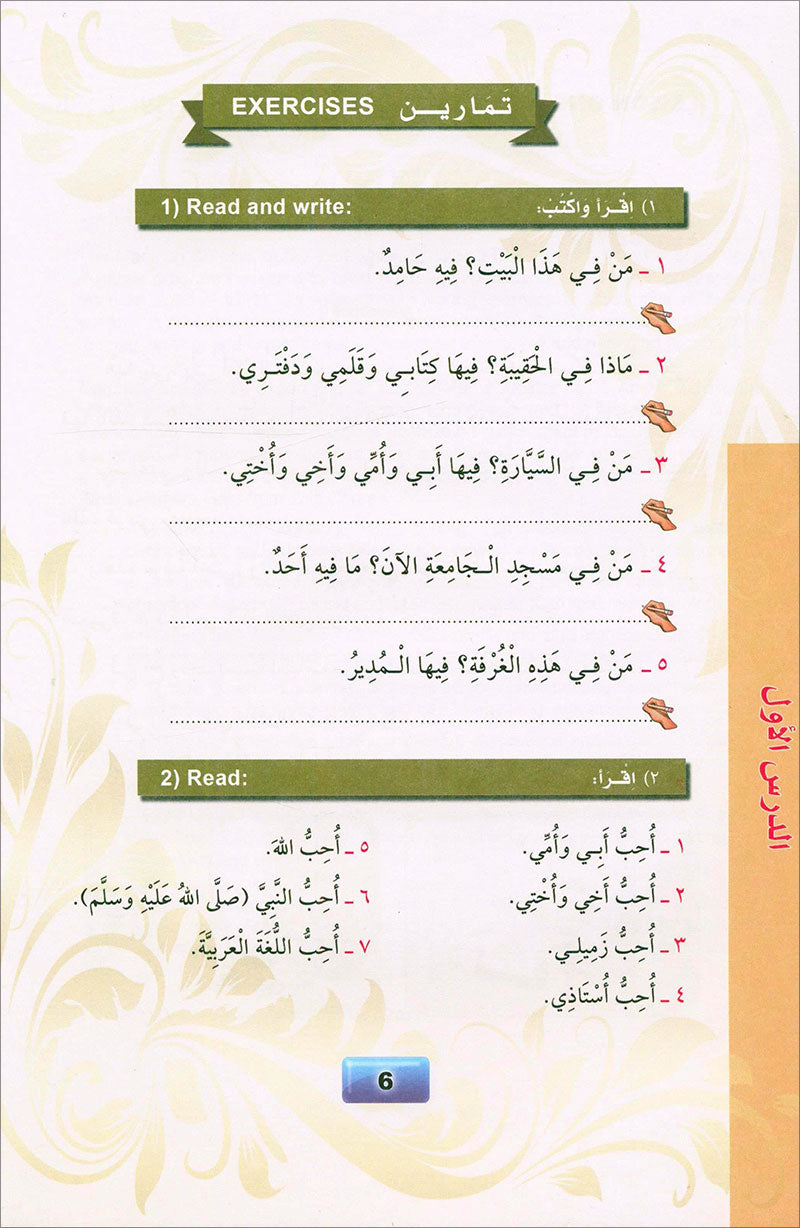 تَمَارِين EXERCISES
١) اِقْرَأْ وَاكْتُبْ: 1) Read and write:
١ ـ مَنْ فِي هَذَا الْبَيْتِ؟ فِيهِ حَامِدٌ.
٢ ـ مَاذا فِي الْحَقِيبَةِ؟ فِيهَا كِتَابِي وَقَلَمِي وَدَفْتَرِي.
٣ ـ مَنْ فِي السَّيَّارَةِ؟ فِيهَا أَبِي وَأُمِّي وَأَخِي وَأُخْتِي.
٤ ـ مَنْ فِي مَسْجِدِ الْجَامِعَةِ الآنَ؟ مَا فِيهِ أَحَدٌ.
٥ ـ مَنْ فِي هَذِهِ الْغُرْفَةِ؟ فِيهَا الْمُدِيرُ.
٢) اِقْرَأْ: 2) Read:
١ ـ أُحِبُّ أَبِي وَأُمِّي.
٢ ـ أُحِبُّ أَخِي وَأُخْتِي.
٣ ـ أُحِبُّ زَمِيلِي.
٤ ـ أُحِبُّ أُسْتَاذِي.
٥ ـ أُحِبُّ اللهَ.
٦ ـ أُحِبُّ النَّبِيَّ (صَلَّى اللهُ عَلَيْهِ وَسَلَّمَ).
٧ ـ أُحِبُّ اللُّغَةَ الْعَرَبِيَّةَ.
الدرس الأول
6